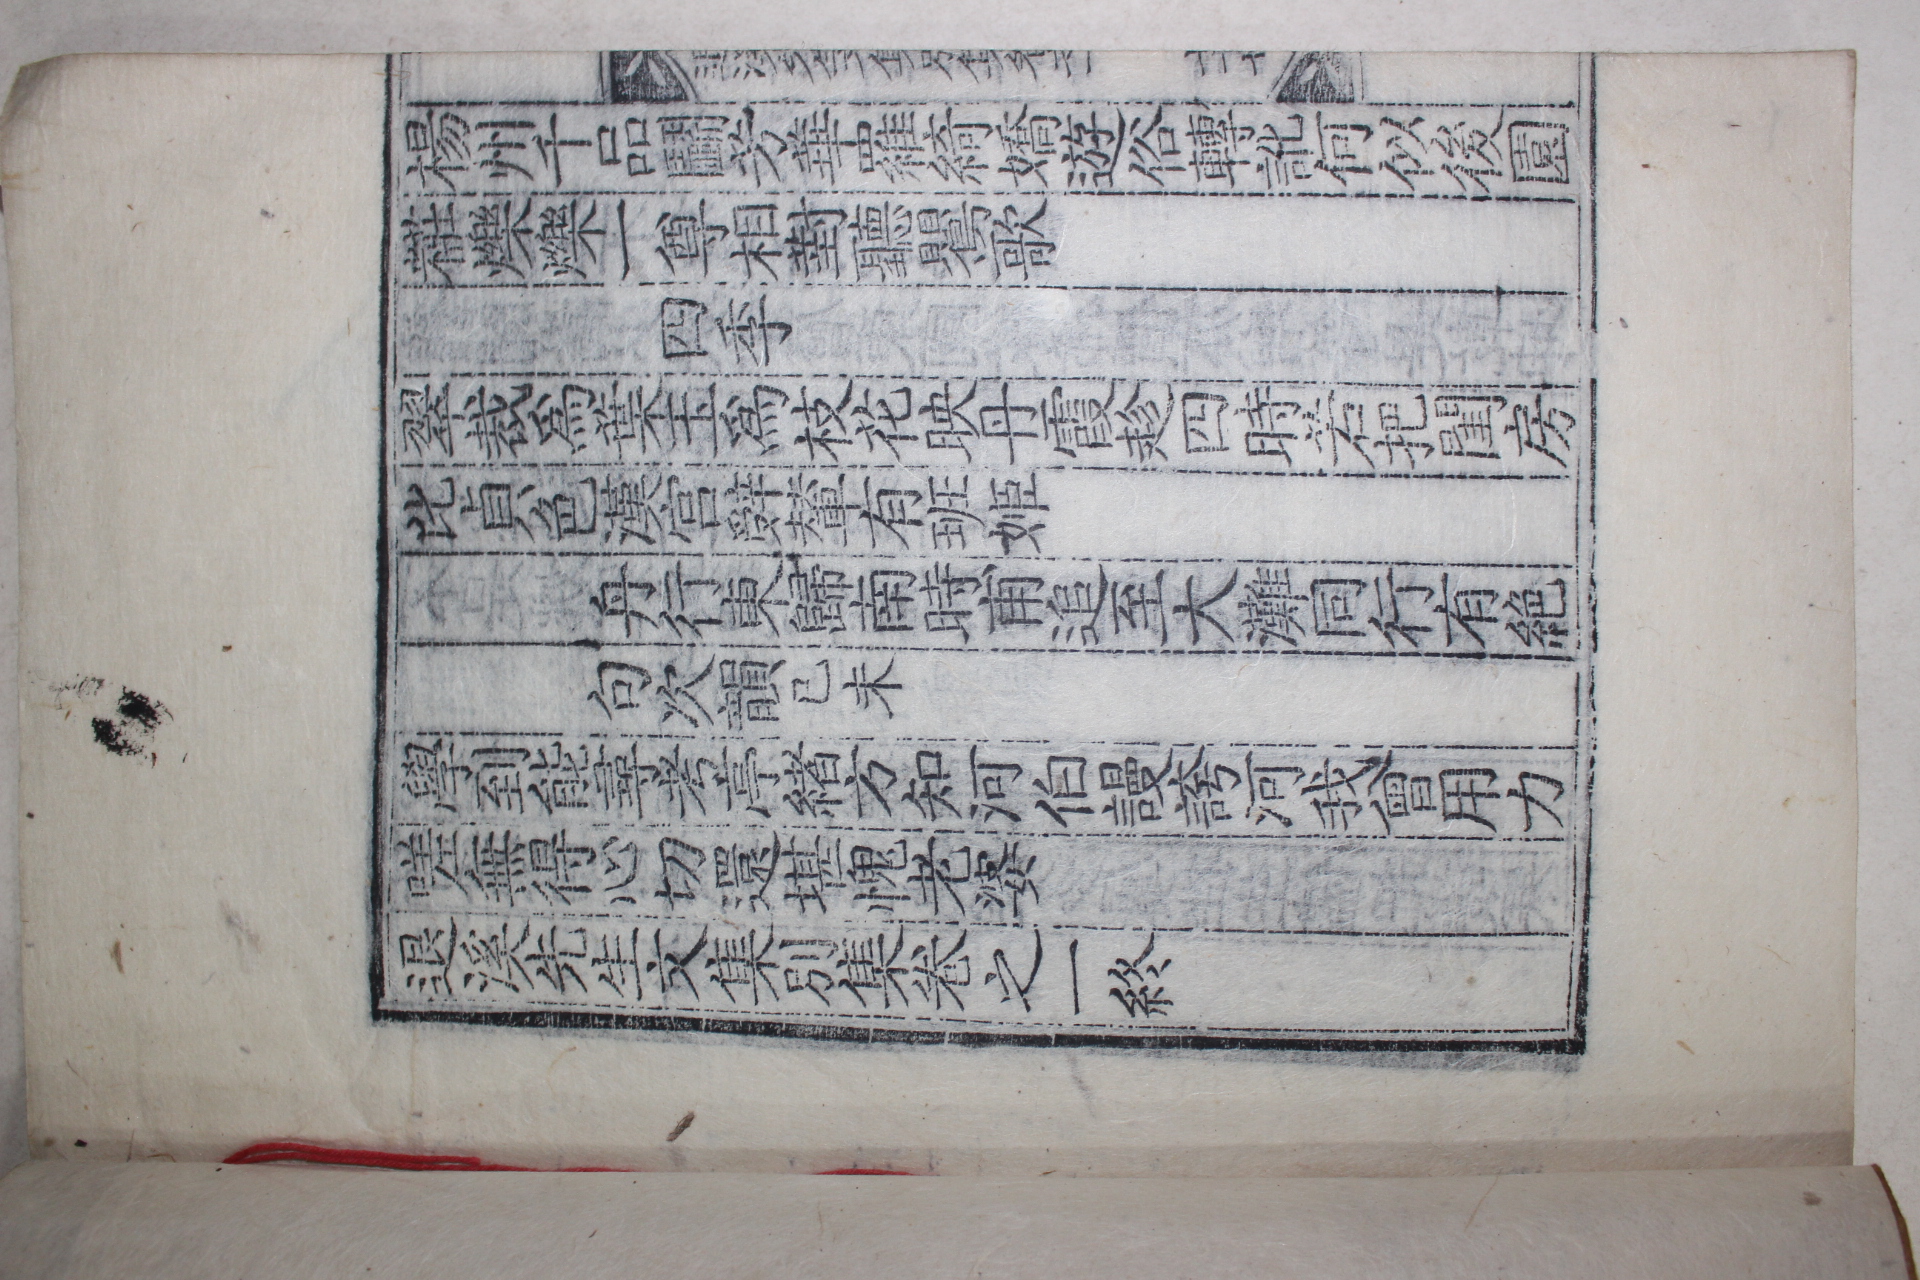 楊州千品鬪芳華羅綺嬌遊俗轉訛何似後園
粧爍爍一尊相對聽鸎歌
四季
翠裁爲葉玉爲枝花映丹霞趁四時若把閨房
比貞色漢宮辭輦有班姬
丹行東歸南時甫追至大灘同行有絶
句次韻己未
學到能尋考亭緖方知河伯謾誇河我曾用力
嗟無得心切還堪愧老婆
退溪先生文集別集卷之一終
退溪先生文集別集卷之一